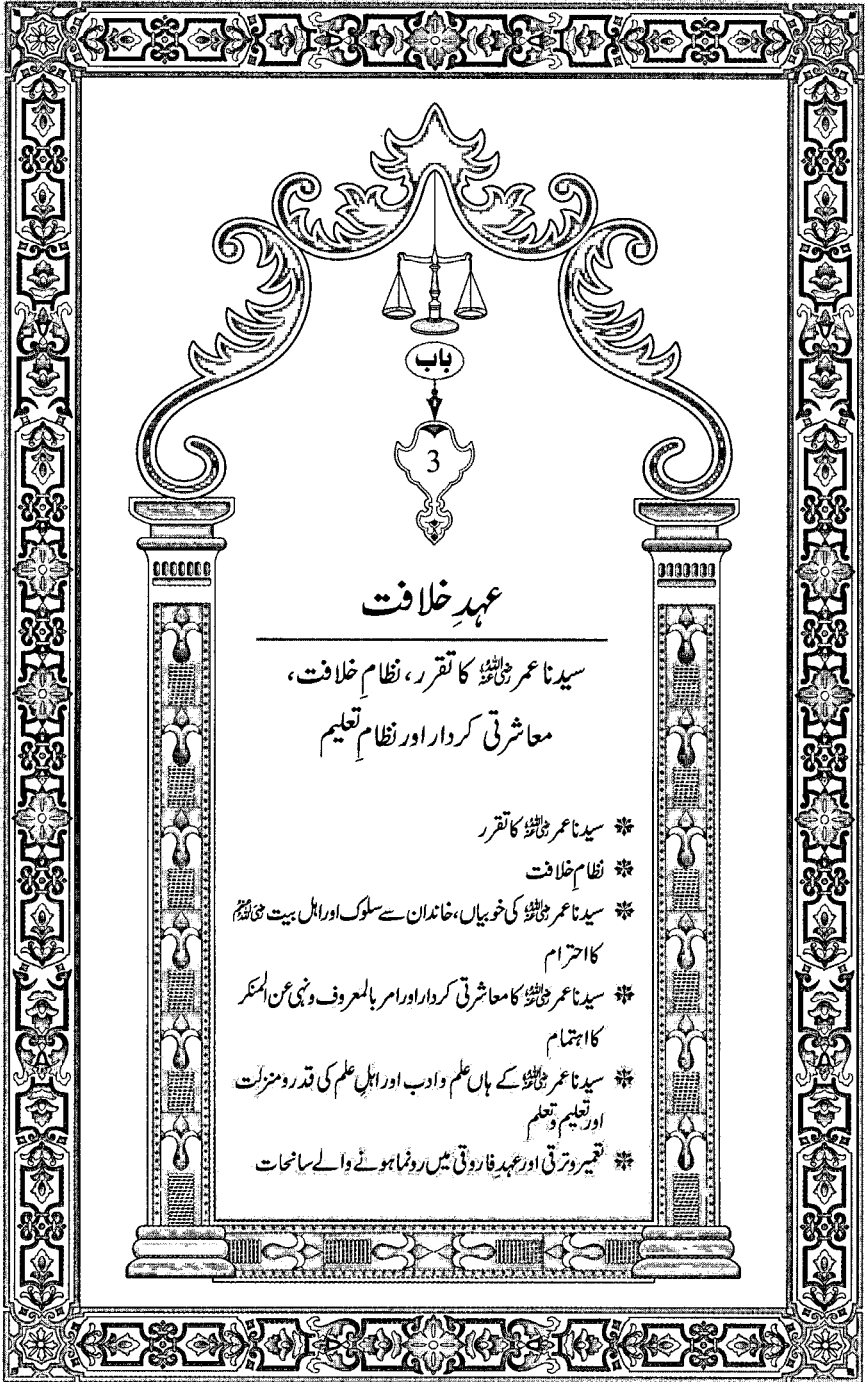 باب
3
عہدِ خلافت
سیدنا عمر رضی اللہ عنہ کا تقرر، نظامِ خلافت،
معاشرتی کردار اور نظامِ تعلیم
سیدنا عمر رضی اللہ عنہ کا تقرر
نظامِ خلافت
سیدنا عمر رضی اللہ عنہ کی خوبیاں، خاندان سے سلوک اور اہل بیت رضی اللہ عنہم
کا احترام
سیدنا عمر رضی اللہ عنہ کا معاشرتی کردار اور امر بالمعروف ونہی عن المنکر
کا اہتمام
سیدنا عمر رضی اللہ عنہ کے ہاں علم و ادب اور اہلِ علم کی قدر و منزلت
اور تعلیم و تعلم
تعمیر و ترقی اور عہدِ فاروقی میں رونما ہونے والے سانحات